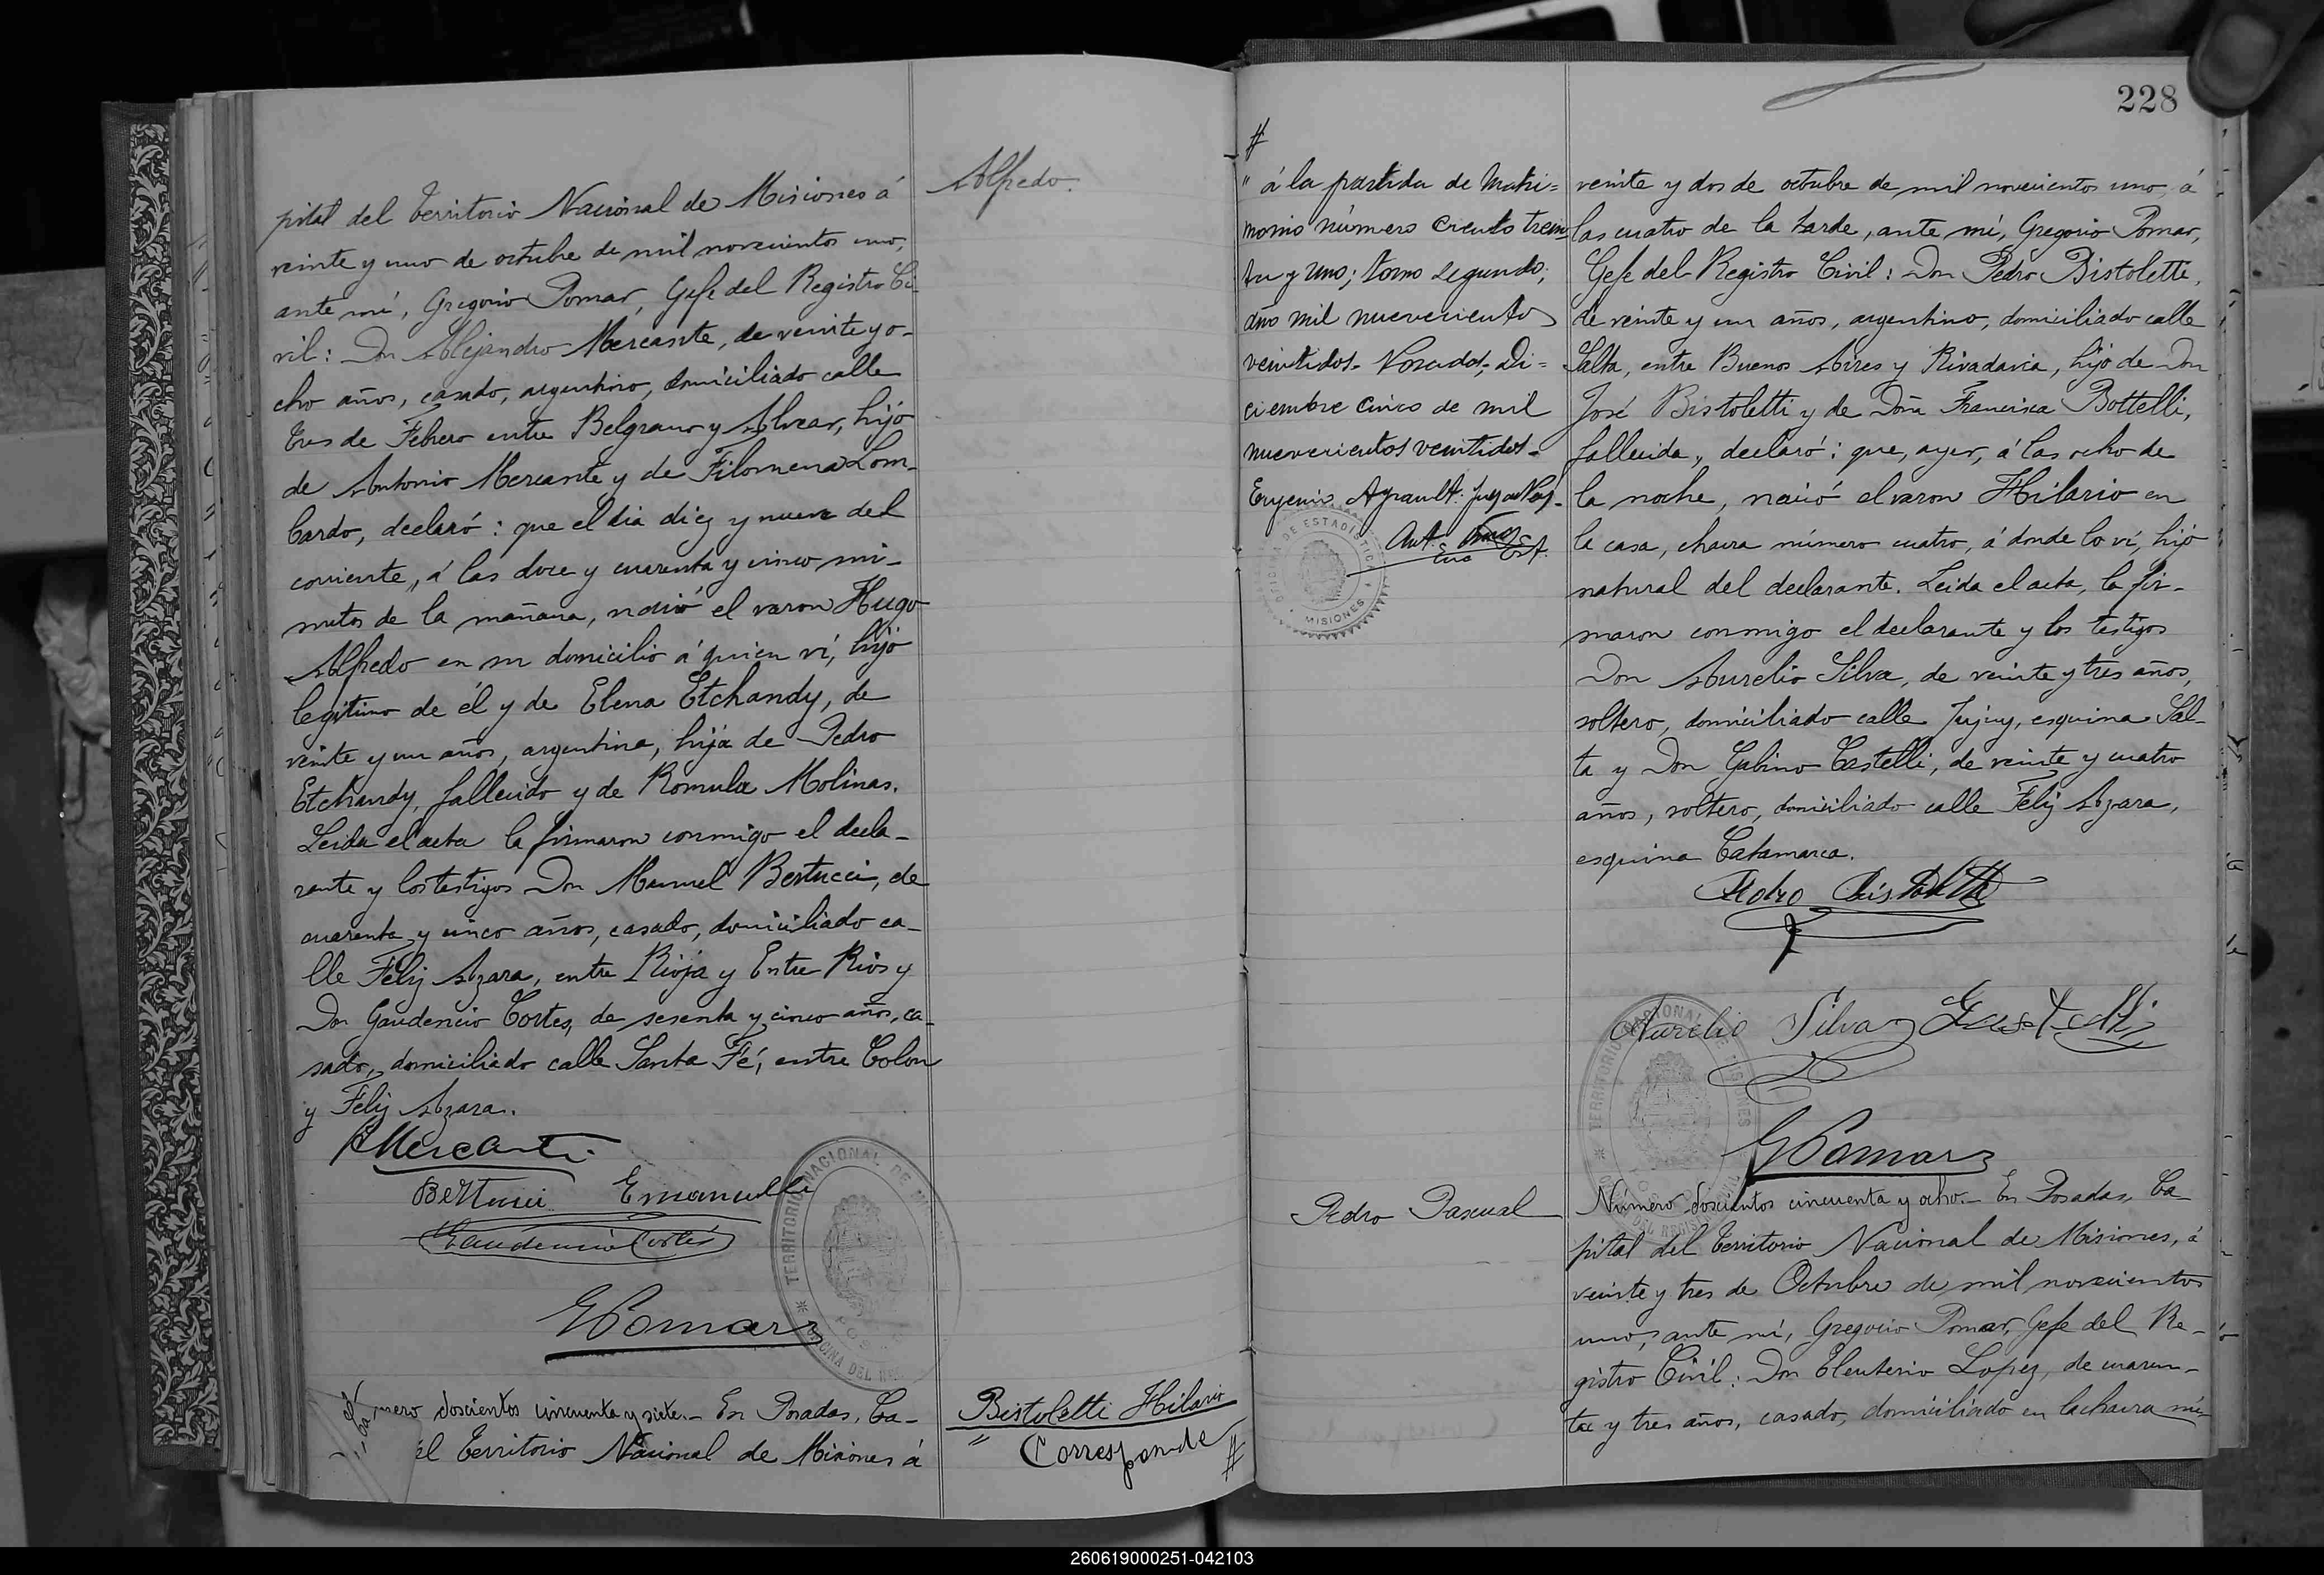 pital del Territorio Nacional de Misiones á
veinte y uno de octubre de mil novecientos uno,
ante mí, Gregorio Pomar, Gefe del Registro Ci-
vil: Don Alejandro Mercante, de veinte y o-
cho años, casado, argentino, domiciliado calle
Tres de Febrero entre Belgrano y Alvear, hijo
de Antonio Mercante y de Filomena Lom-
bardo, declaró: que el dia diez y nueve del
corriente, á las doce y cuarenta y cinco mi-
nutos de la mañana, nació el varon Hugo
Alfredo en su domicilio á quien ví, hijo
legítimo de él y de Elena Etchandy, de
veinte y un años, argentina, hija de Pedro
Etchandy, fallecido y de Romula Molinas.
Leida el acta la firmaron conmigo el decla-
rante y los testigos Don Manuel Bertucci, de
cuarenta y cinco años, casado, domiciliado ca-
lle Feliz Azara, entre Rioja y Entre Rios y
Don Gaudencio Cortes, de sesenta y cinco años, ca-
sado, domiciliado calle Santa Fé, entre Colon
y Feliz Azara.
AMercante
Bertucci Emanuelle
Gaudencio Cortes
GPomar
TERRITORIO NACIONAL DE
OFICINA DEL
mero doscientos cincuenta y siete.- En Posadas, Ca-
el Territorio Nacional de Misiones á
Alfredo.
Bistoletti Hilario
" Corresponde #
228
#
" á la partida de matri=
monio número ciento trein
ta y uno; tomo segundo;
año mil nuevecientos
veintidos. Posadas, Di=
ciembre cinco de mil
nuevecientos veintidos.
Eugenio Ayrault. Juez de Paz.
OFICINA DE ESTADISTICA Y
MISIONES
veinte y dos de octubre de mil novecientos uno, á
las cuatro de la tarde, ante mí, Gregorio Pomar,
Gefe del Registro Civil: Don Pedro Bistoletti,
de veinte y un años, argentino, domiciliado calle
Salta, entre Buenos Aires y Rivadavia, hijo de Don
José Bistoletti y de Doña Francisca Bottelli,
fallecida, declaró: que, ayer, á las ocho de
la noche, nació el varon Hilario en
la casa, chacra número cuatro, á donde lo ví, hijo
natural del declarante. Leida el acta, la fir-
maron conmigo el declarante y los testigos
Don Aurelio Silva, de veinte y tres años,
soltero, domiciliado calle Jujuy, esquina Sal-
ta y Don Gabino Castelli, de veinte y cuatro
años, soltero, domiciliado calle Feliz Azara,
esquina Catamarca.
Pedro Bistoletti
Aurelio Silva GCastelli
TERRITORIO NACIONAL DE MISIONES
DEL REGIS
GPomar
Pedro Pascual
Número doscientos cincuenta y ocho.- En Posadas, Ca-
pital del Territorio Nacional de Misiones, á
veinte y tres de Octubre de mil novecientos
uno, ante mí, Gregorio Pomar, Gefe del Re-
gistro Civil: Don Eleuterio Lopez, de cuaren-
ta y tres años, casado, domiciliado en la chacra nú-
260619000251-042103